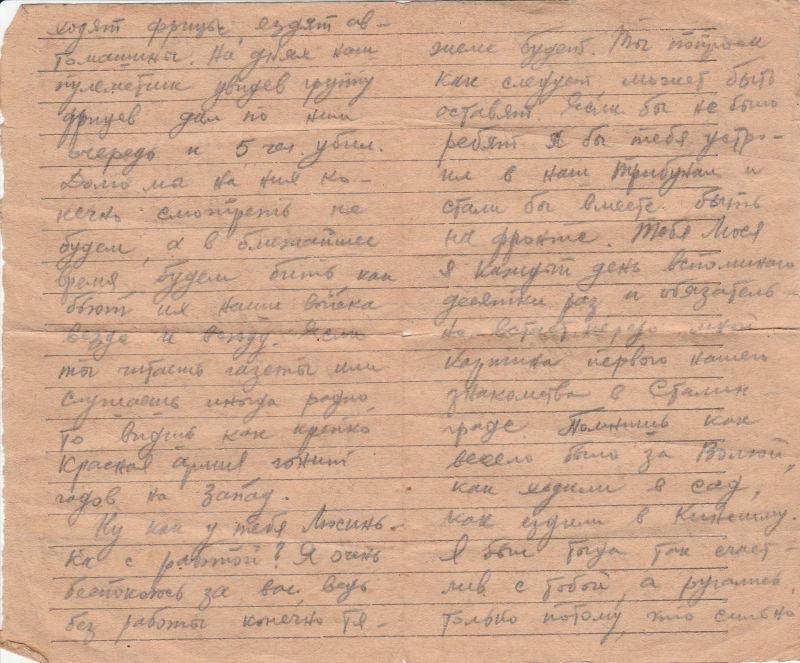 ходят фрицы, ездят ав-
томашины. На днях наш
пулеметчик увидев группу
фрицев дал по ним
очередь и 5 чел. убил.
Долго мы на них ко-
нечно смотреть не
будем, а в ближайшее
время будем бить как
бьют их наши войска
везде и всюду. Если
ты читаешь газеты или
слушаешь иногда радио
то видишь как крепко
Красная армия гонит
гадов на Запад.
Ну как у тебя Люсинь-
ка с работой? Я очень
беспокоюсь за вас, ведь
без работы конечно тя-
жело будет. Ты попроси
как следует, может быть
оставят. Если бы не было
ребят я бы тебя устро-
ил в наш трибунал и
стали бы вместе быть
на фронте. Тебя Люся
я каждый день вспоминаю
десятки раз и обязатель-
но встает передо мной
картина первого нашего
знакомства в Сталин-
граде. Помнишь как
весело было за Волгой,
как ходили в сад,
как ездили в Кинешму.
Я был тогда так счаст-
лив с тобой, а ругались
только потому, что сильно